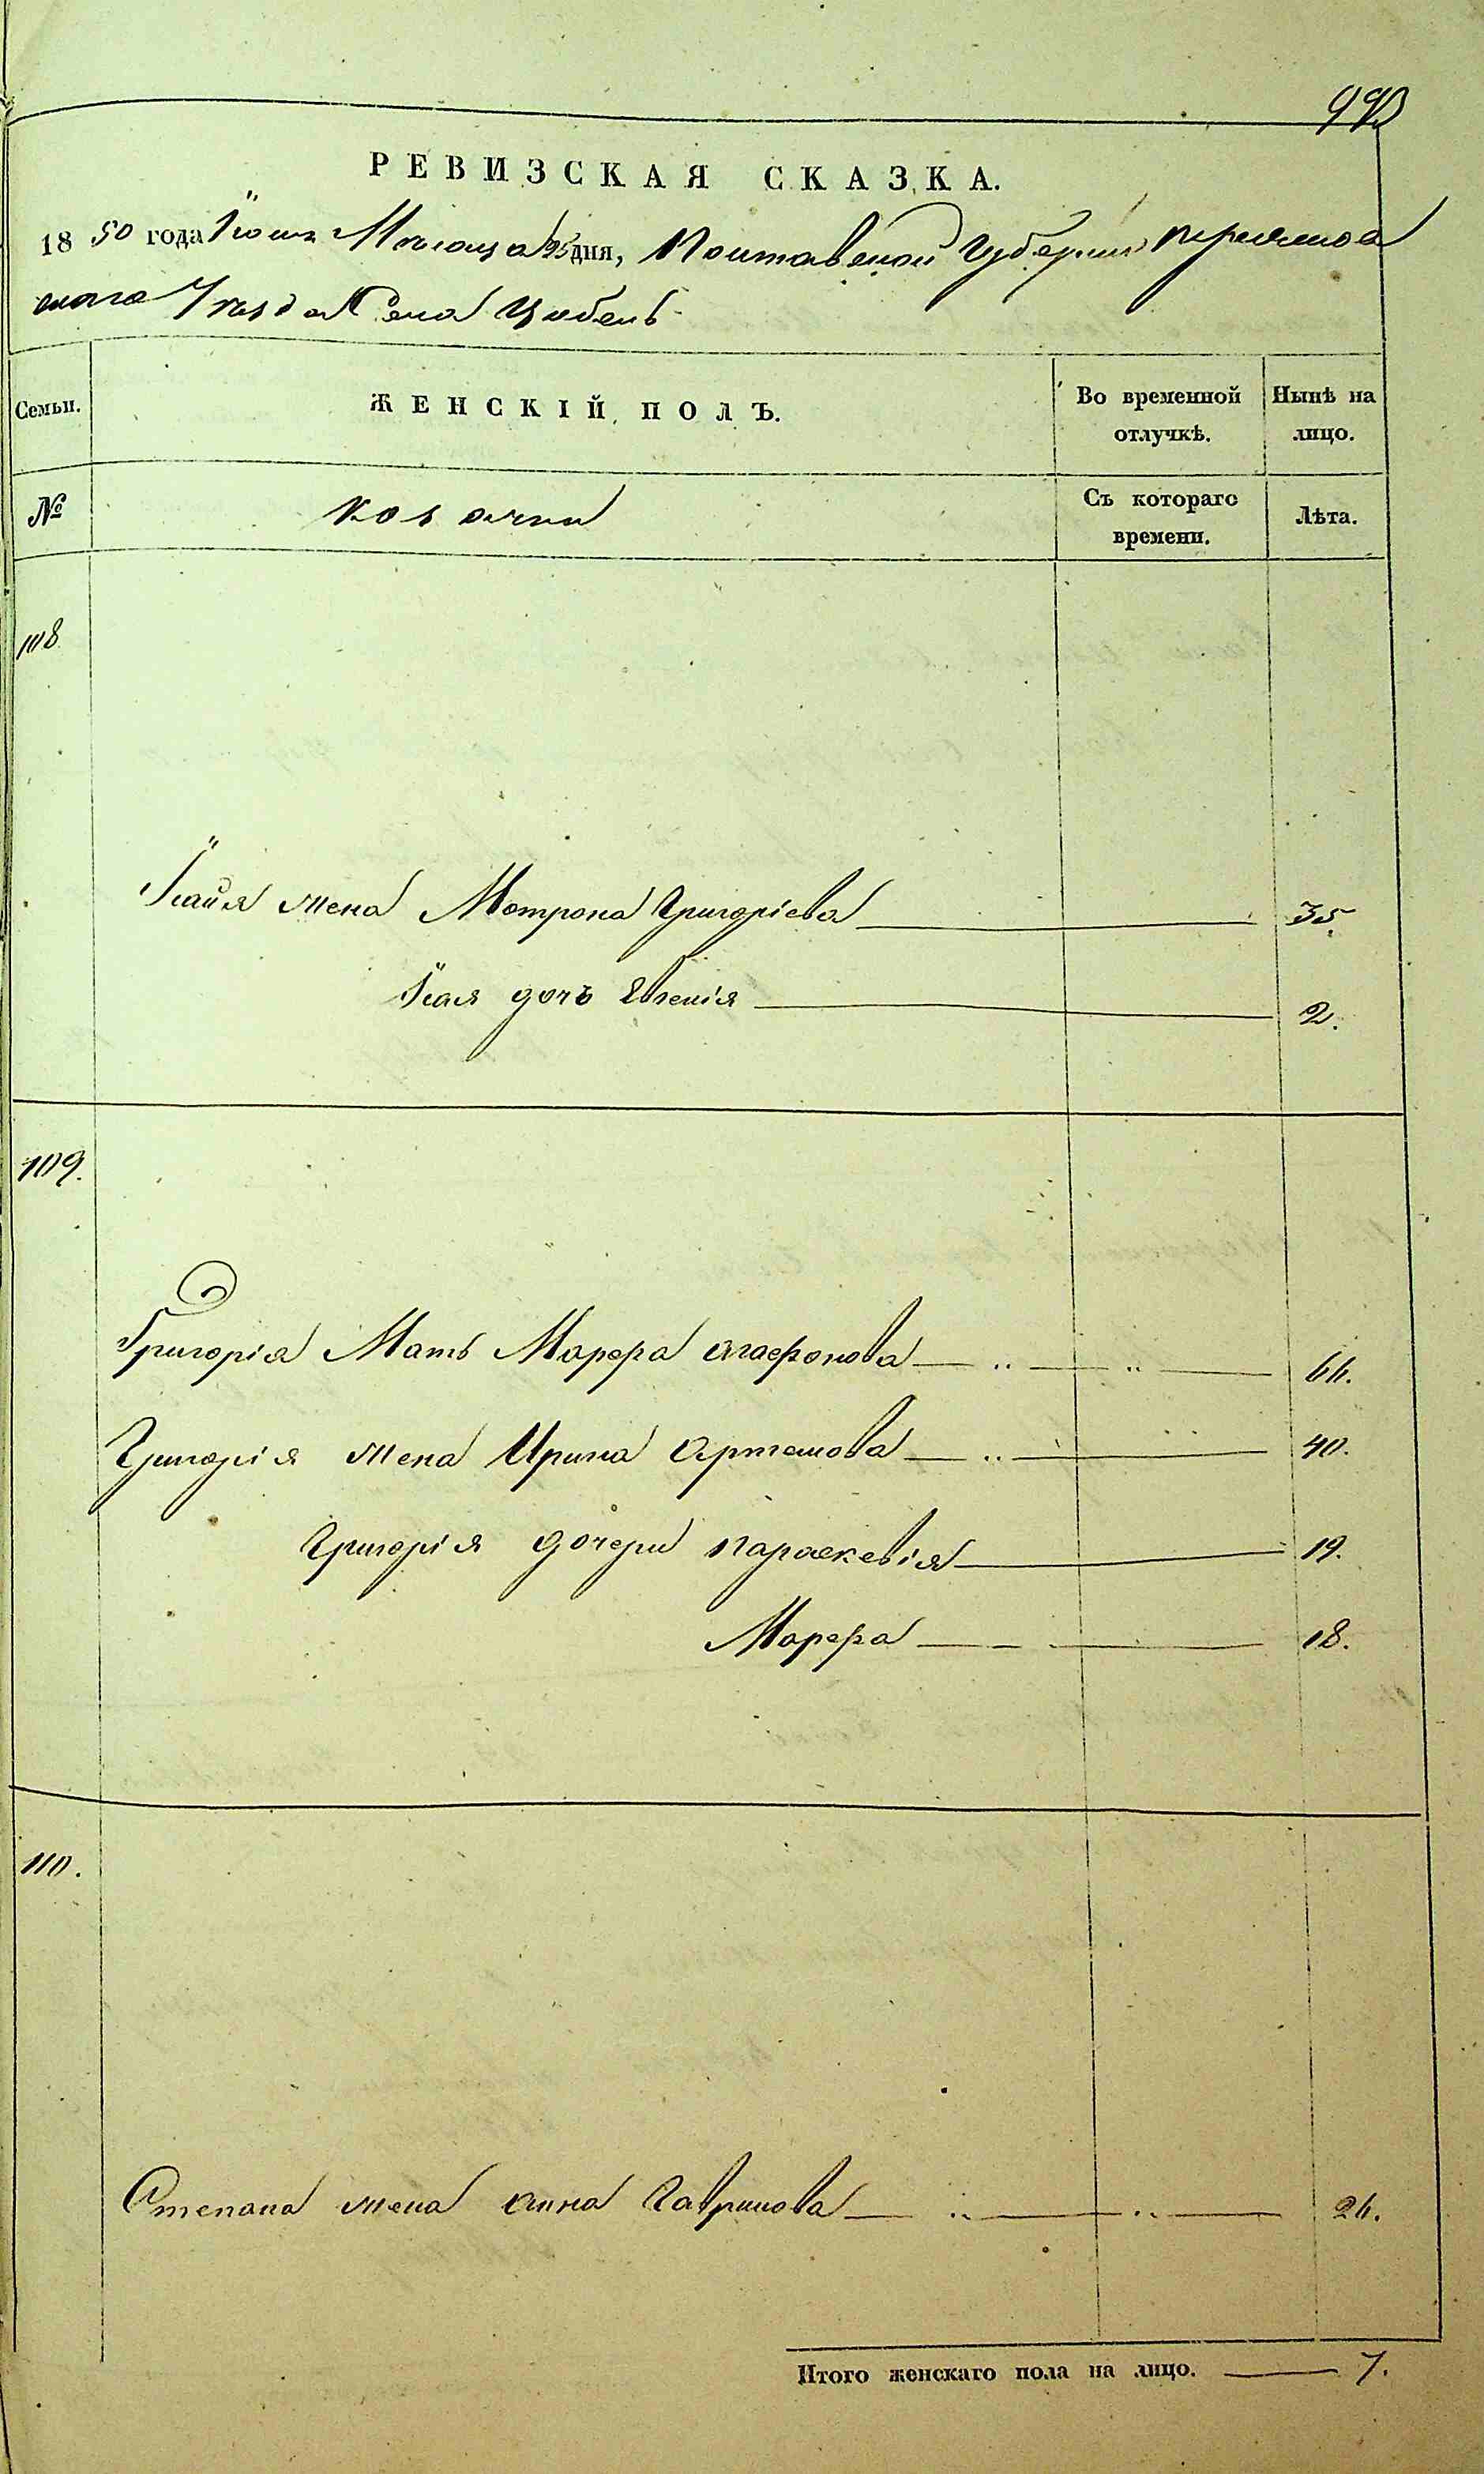 РЕВИЗСКАЯ СКАЗКА.
18 50 года Іюля Месяца 25 дня, Полтавской Губерніи Переяслов
скаго Уезда Села Цибель
Семьи.
ЖЕНСКІЙ ПОЛЪ.
Во временной отлучкѣ.
Нынѣ на лицо.
№
козачки
Съ котораго времени.
Лѣта.
108
жена Мотрона Григоріева 35.
дочь Евгенія 2.
109.
Григорія Мать Марфа Агафонова 66.
Григорія жена Ирина Артемова 40.
Григорія дочери Параскевія 19.
Марфа 18.
110.
Степана жена Анна Гаврилова 26.
Итого женскаго пола на лицо. 7.